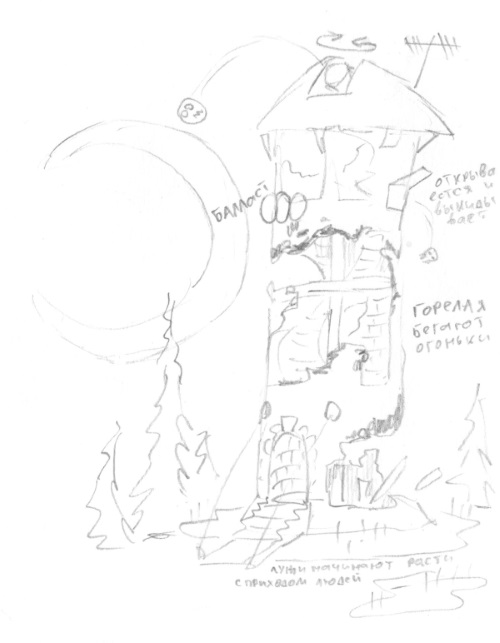 БАЛЛАСТ
ОТКРЫВА
ЕТСЯ И
ВЫКИДЫ
ВАЕТ
ГОРЕЛАЯ
БЕГАЮТ
ОГОНЬКИ
ЛУЖИ НАЧИНАЮТ РАСТИ
С ПРИХОДОМ ЛЮДЕЙ